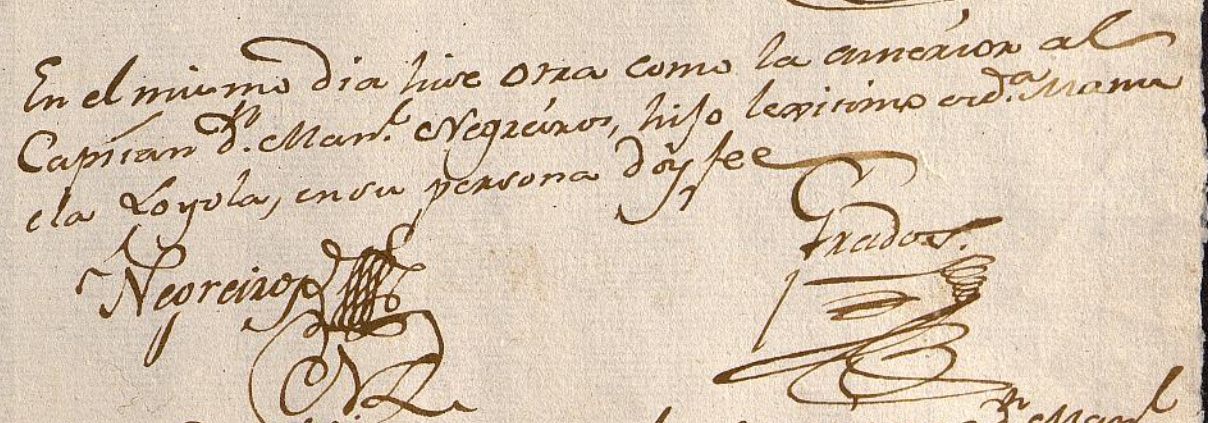 En el mismo dia hise otra como la anterior al
Capitan Dn. Manl. Negreiros, hijo lexitimo de Da. Manu
ela Loyola, en su persona doy fee
Negreiros
Grados.
Dn. Manl